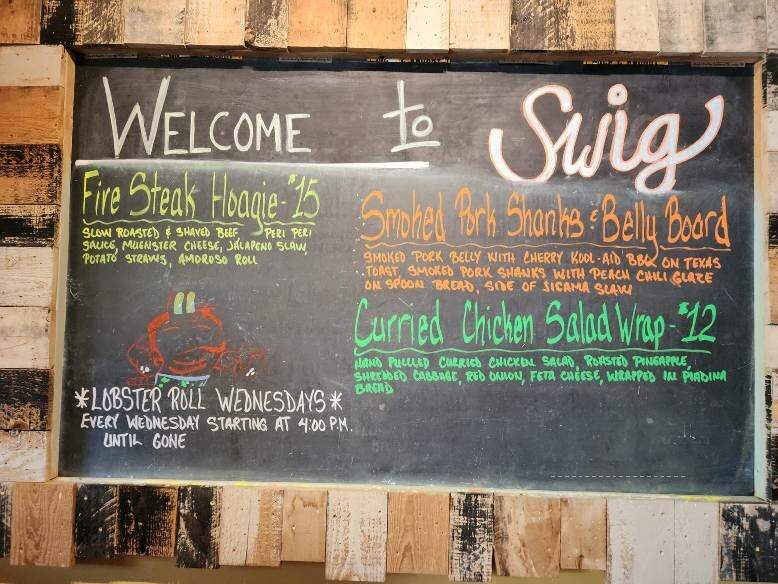 WELCOME to Swig
Fire Steak Hoagie - $15
SLOW ROASTED & SHAVED BEEF PERI PERI
SAUCE, MUENSTER CHEESE, JALAPENO SLAW,
POTATO STRAWS, AMOROSO ROLL
*LOBSTER ROLL WEDNESDAYS*
EVERY WEDNESDAY STARTING AT 4:00 P.M.
UNTIL GONE
Smoked Pork Shanks & Belly Board
SMOKED PORK BELLY WITH CHERRY KOOL-AID BBQ ON TEXAS
TOAST, SMOKED PORK SHANKS WITH PEACH CHILI GLAZE
ON SPOON BREAD, SIDE OF JICAMA SLAW
Curried Chicken Salad Wrap - $12
HAND PULLLED CURRIED CHICKEN SALAD, ROASTED PINEAPPLE,
SHREDDED CABBAGE, RED ONION, FETA CHEESE, WRAPPED IN PIADINA
BREAD